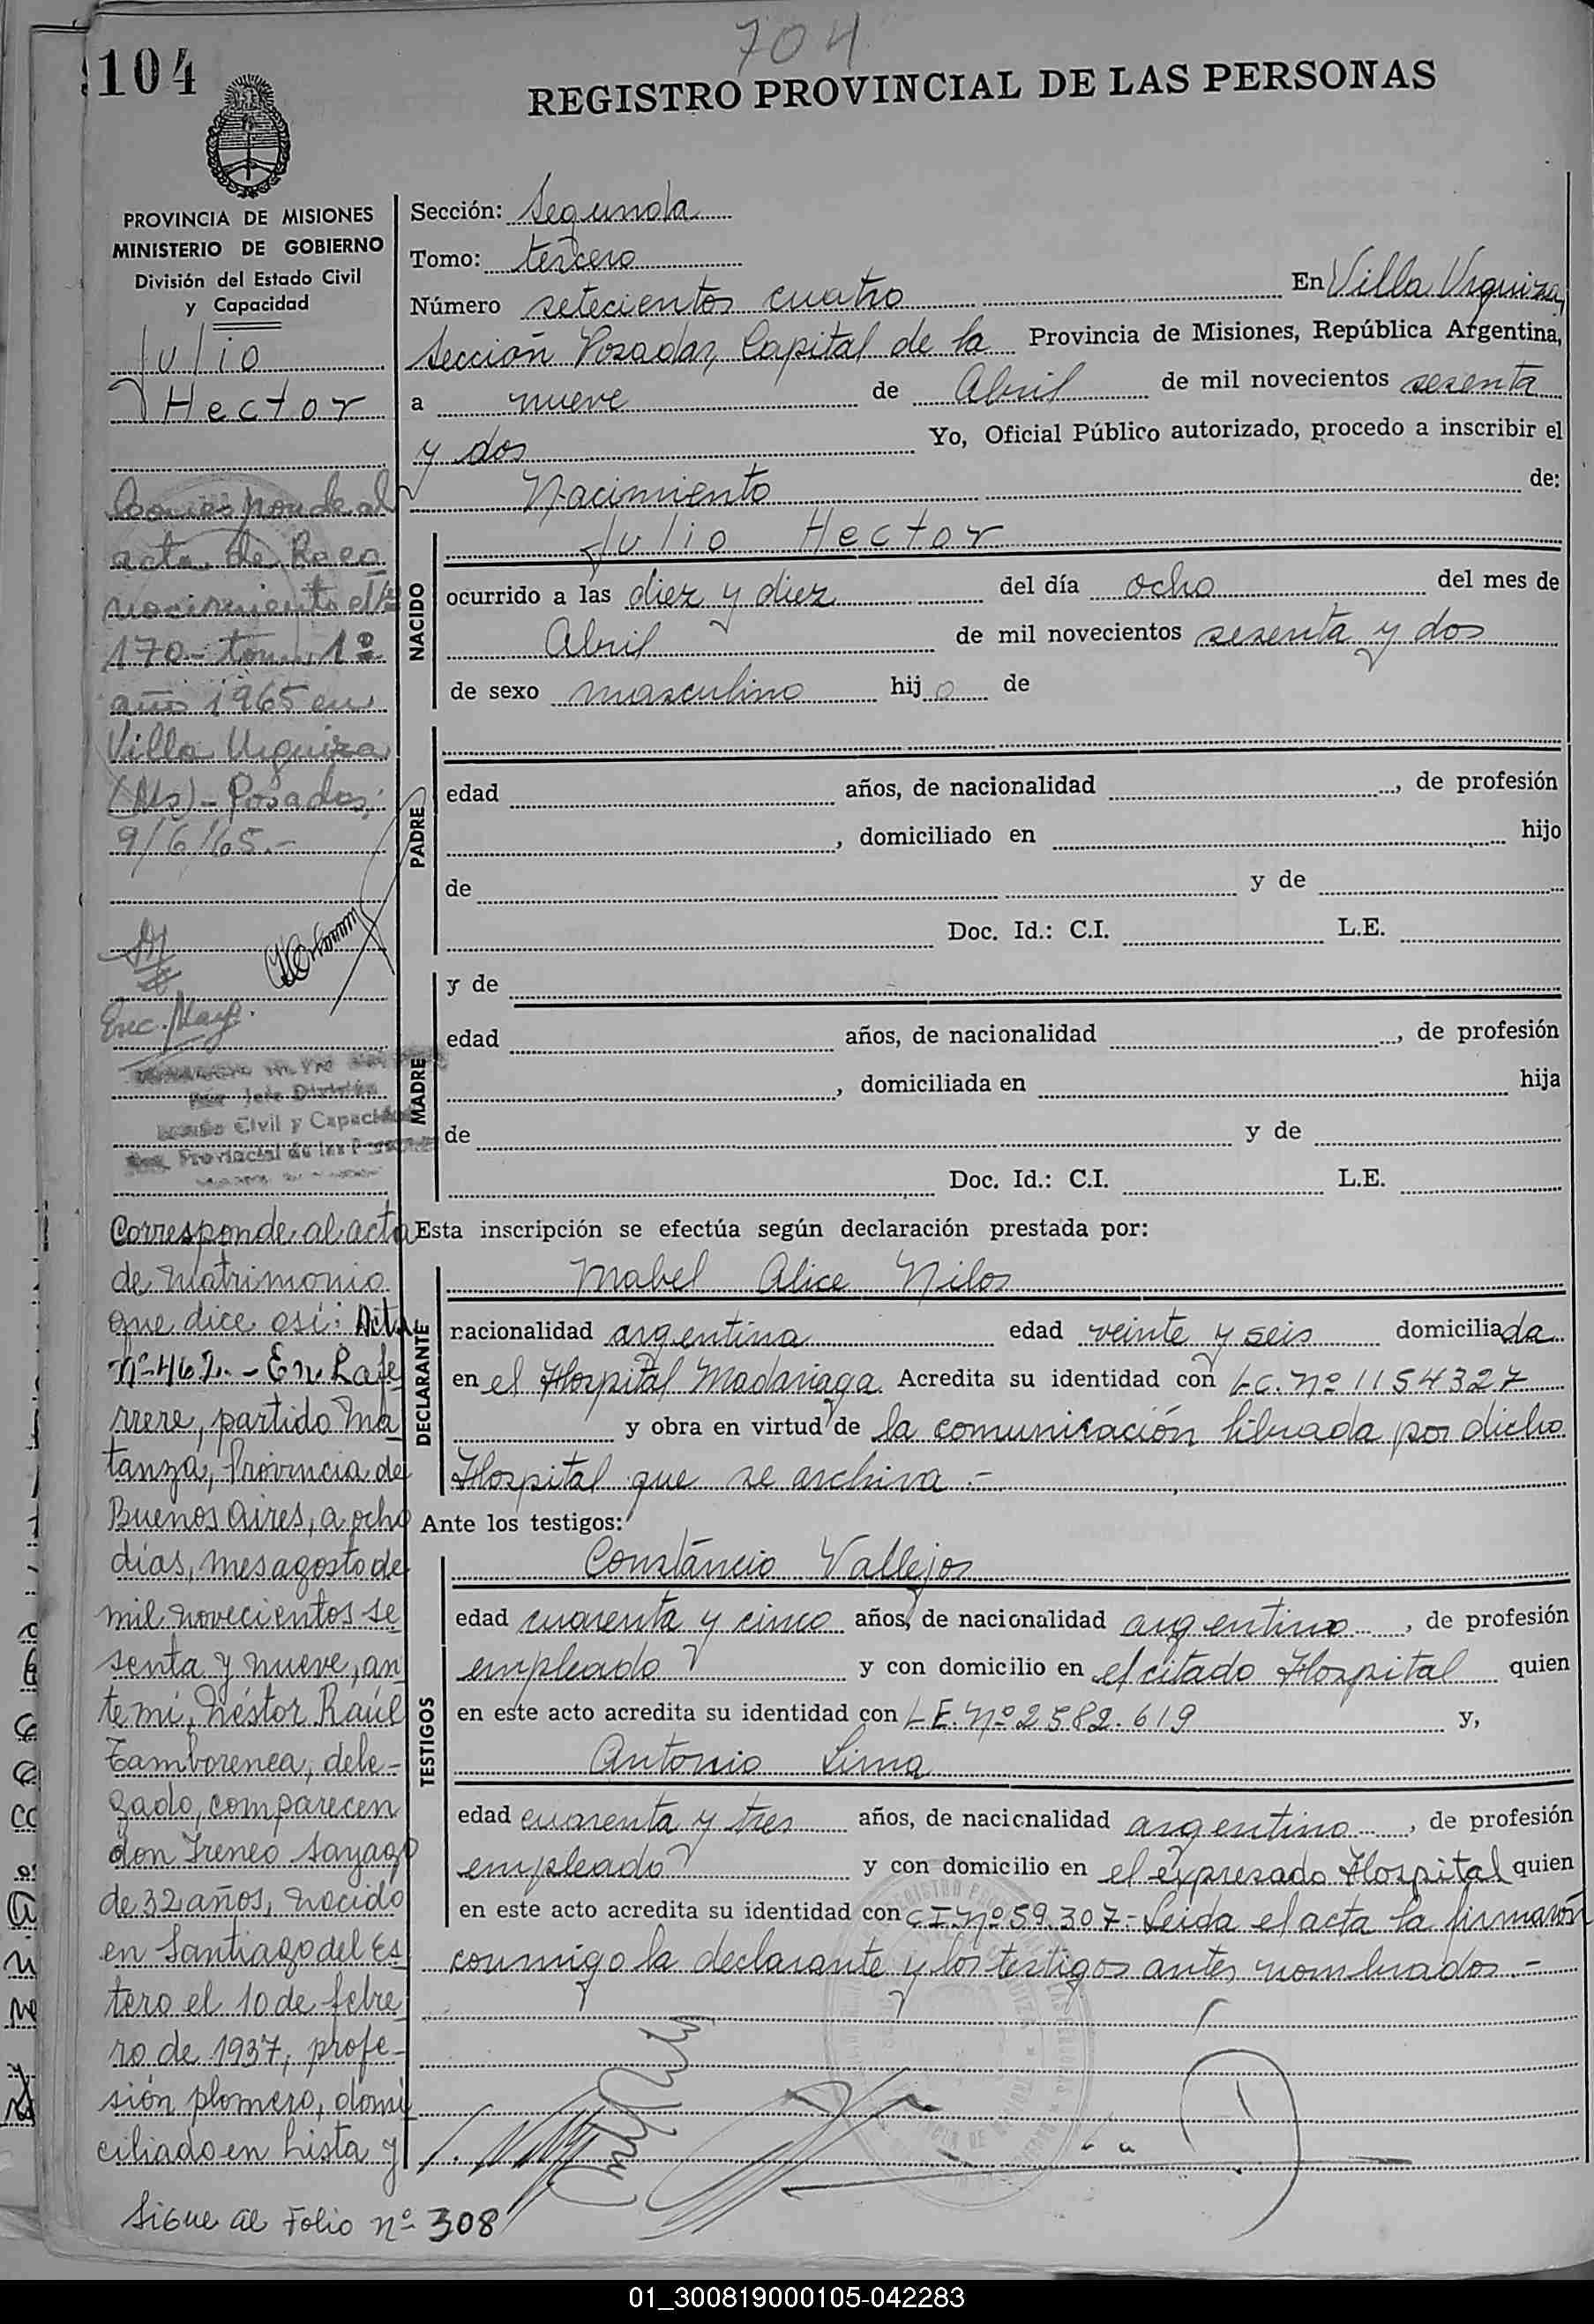 104
704
REGISTRO PROVINCIAL DE LAS PERSONAS
PROVINCIA DE MISIONES
MINISTERIO DE GOBIERNO
División del Estado Civil
y Capacidad
Julio
Hector
Corresponde al
acta de Reco
nocimiento Nº
170 - tomo 1º
año 1965 en
Villa Urquiza
(Ms) - Posadas,
9/6/65.-
Enc. Mayp.
Jefe División
Estado Civil y Capacidad
Reg. Provincial de las Personas
Corresponde al acta
de Matrimonio
que dice asi: Acta
Nº 462.- En Rafe
rrere, partido Ma
tanza, Provincia de
Buenos Aires, a ocho
días, mes agosto de
mil novecientos se
senta y nueve, an
te mí, Néstor Raúl
Tamborenea, dele-
gado, comparecen
don Ireneo Sayago
de 32 años, nacido
en Santiago del Es
tero el 10 de febre
ro de 1937, profe-
sión plomero, domi
ciliado en Lista y
Sigue al Folio nº 308
Sección: Segunda
Tomo: tercero
Número setecientos cuatro En Villa Urquiza,
Sección Posadas, Capital de la Provincia de Misiones, República Argentina,
a nueve de Abril de mil novecientos sesenta
y dos Yo, Oficial Público autorizado, procedo a inscribir el
Nacimiento de:
NACIDO
Julio Hector
ocurrido a las diez y diez del día ocho del mes de
Abril de mil novecientos sesenta y dos
de sexo masculino hijo de
PADRE
edad años, de nacionalidad , de profesión
, domiciliado en hijo
de y de
Doc. Id.: C.I. L.E.
MADRE
y de
edad años, de nacionalidad , de profesión
, domiciliada en hija
de y de
Doc. Id.: C.I. L.E.
Esta inscripción se efectúa según declaración prestada por:
DECLARANTE
Mabel Alice Nilos
nacionalidad argentina edad veinte y seis domiciliada
en el Hospital Madariaga Acredita su identidad con L.C. Nº 1154327
y obra en virtud de la comunicación librada por dicho
Hospital que se archiva.-
Ante los testigos:
TESTIGOS
Constáncio Vallejos
edad cuarenta y cinco años, de nacionalidad argentino , de profesión
empleado y con domicilio en el citado Hospital quien
en este acto acredita su identidad con L.E. Nº 2582.619 y,
Antonio Lima
edad cuarenta y tres años, de nacionalidad argentino , de profesión
empleado y con domicilio en el expresado Hospital quien
en este acto acredita su identidad con C.I. Nº 59.307.- Leida el acta la firmaron
conmigo la declarante y los testigos antes nombrados.-
01_300819000105-042283